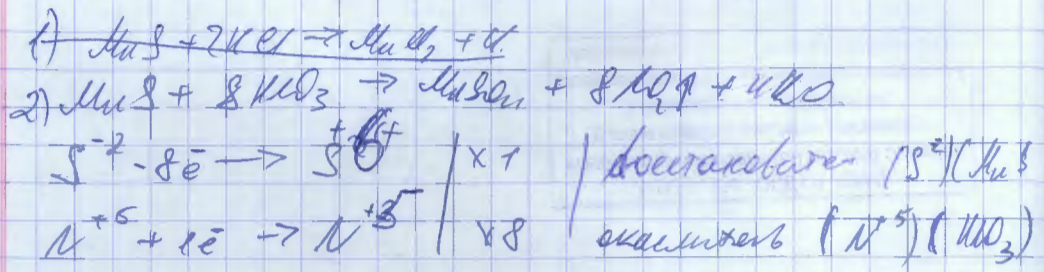 1) MnS + 2HCl → MnCl2 +
2) MnS + 8HNO3 → MnSO4 + 8NO2↑ + 4H2O
S^-2 - 8ē → S^+6 | x 1 | восстановитель (S^-2)(MnS
N^+5 + 1ē → N^+5 | x 8 окислитель (N^+5)(HNO3)